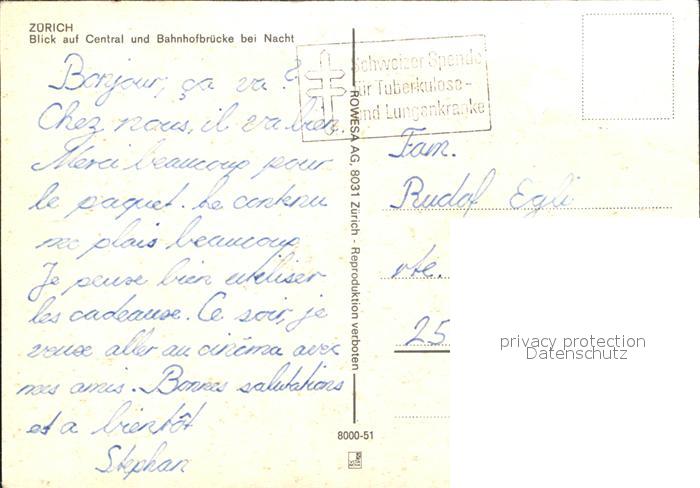 ZÜRICH
Blick auf Central und Bahnhofbrücke bei Nacht
Bonjour, ça va?
Chez nous, il va bien.
Merci beaucoup pour
le paquet. Le contenu
me plais beaucoup
Je peuxe bien utiliser
les cadeauxe. Ce soir, je
veuxe aller au cinéma avec
mes amis. Bonnes salutations
et a bientôt
Stephan
Schweizer Spende
für Tuberkulose-
und Lungenkranke
ROWESA AG, 8031 Zürich - Reproduktion verboten
Fam.
Rudolf Egli
rte.
25
privacy protection
Datenschutz
8000-51